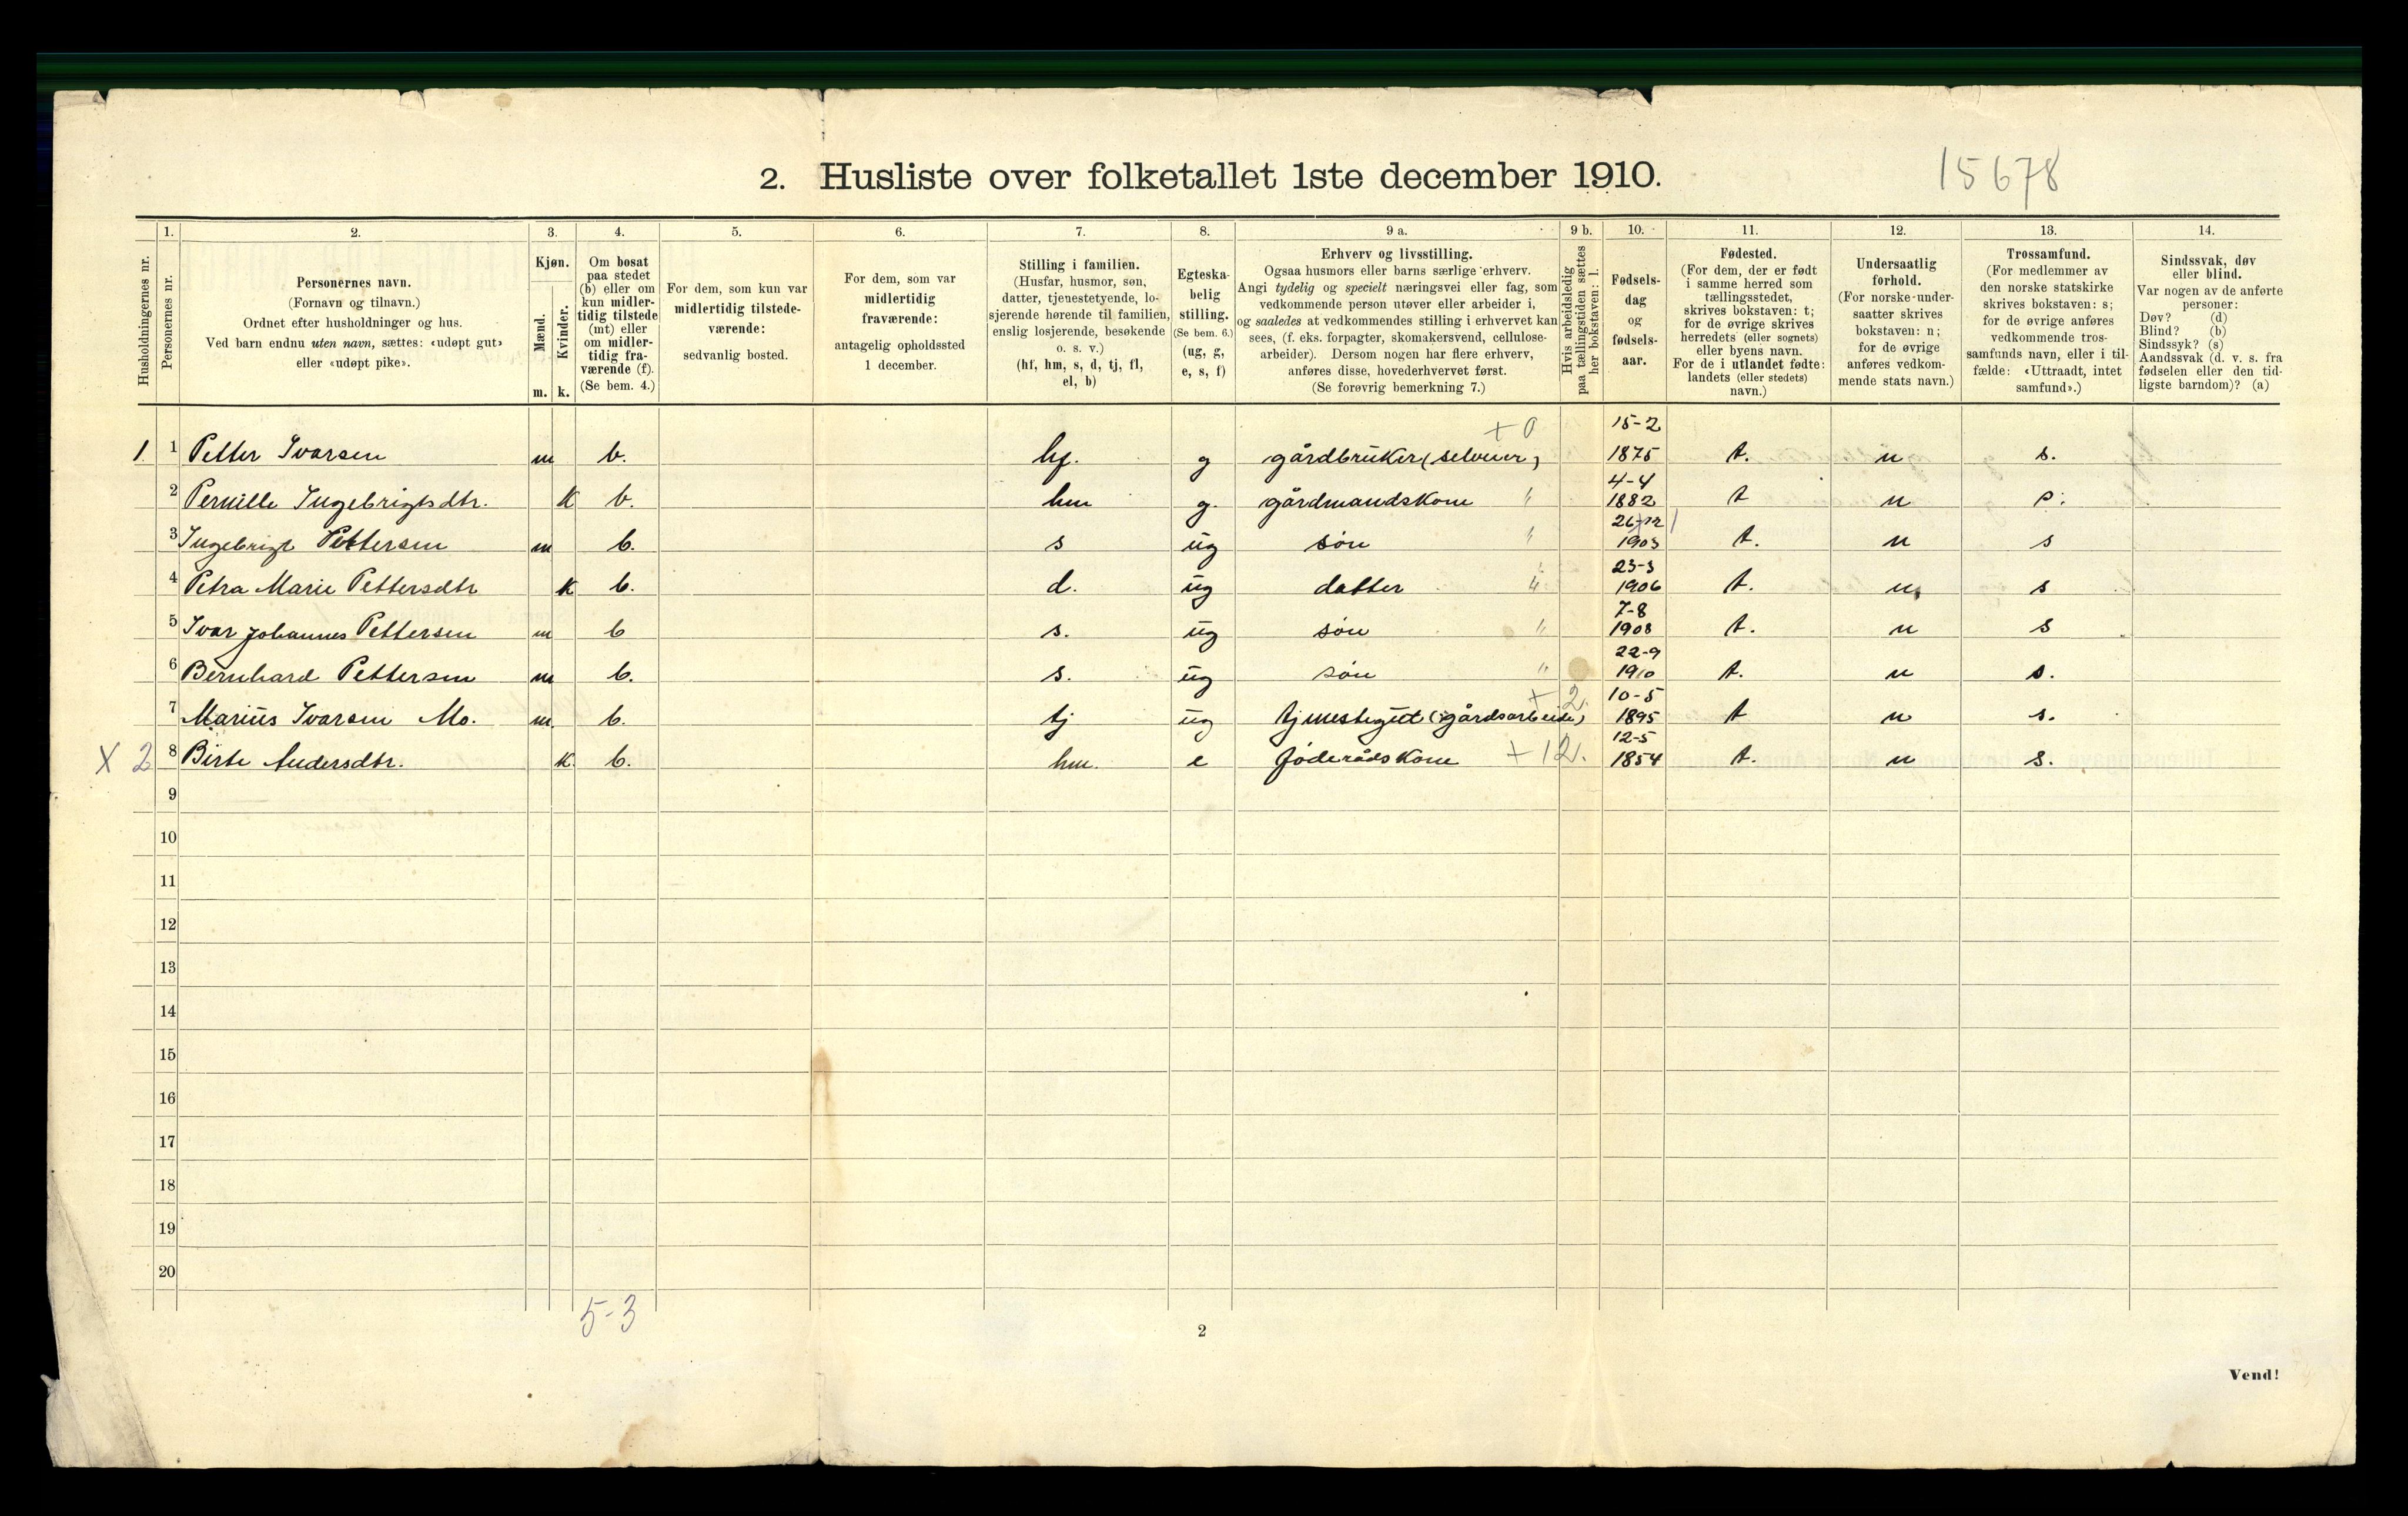 2. Husliste over folketallet 1ste december 1910.
15678
Husholdningernes nr.
1.
Personernes nr.
2.
Personernes navn.
(Fornavn og tilnavn.)
Ordnet efter husholdninger og hus.
Ved barn endnu uten navn, sættes: «udøpt gut»
eller «udøpt pike».
3.
Kjøn.
Mænd.
Kvinder.
m. k.
4.
Om bosat
paa stedet
(b) eller om
kun midler-
tidig tilstede
(mt) eller
om midler-
tidig fra-
værende (f).
(Se bem. 4.)
5.
For dem, som kun var
midlertidig tilstede-
værende:
sedvanlig bosted.
6.
For dem, som var
midlertidig
fraværende:
antagelig opholdssted
1 december.
7.
Stilling i familien.
(Husfar, husmor, søn,
datter, tjenestetyende, lo-
sjerende hørende til familien,
enslig losjerende, besøkende
o. s. v.)
(hf, hm, s, d, tj, fl,
el, b)
8.
Egteska-
belig
stilling.
(Se bem. 6.)
(ug, g,
e, s, f)
9 a.
Erhverv og livsstilling.
Ogsaa husmors eller barns særlige erhverv.
Angi tydelig og specielt næringsvei eller fag, som
vedkommende person utøver eller arbeider i,
og saaledes at vedkommendes stilling i erhvervet kan
sees, (f. eks. forpagter, skomakersvend, cellulose-
arbeider). Dersom nogen har flere erhverv,
anføres disse, hovederhvervet først.
(Se forøvrig bemerkning 7.)
9 b.
Hvis arbeidsledig
paa tællingstiden sættes
her bokstaven: l.
10.
Fødsels-
dag
og
fødsels-
aar.
11.
Fødested.
(For dem, der er født
i samme herred som
tællingsstedet,
skrives bokstaven: t;
for de øvrige skrives
herredets (eller sognets)
eller byens navn.
For de i utlandet fødte:
landets (eller stedets)
navn.)
12.
Undersaatlig
forhold.
(For norske under-
saatter skrives
bokstaven: n;
for de øvrige
anføres vedkom-
mende stats navn.)
13.
Trossamfund.
(For medlemmer av
den norske statskirke
skrives bokstaven: s;
for de øvrige anføres
vedkommende tros-
samfunds navn, eller i til-
fælde: «Uttraadt, intet
samfund».)
14.
Sindssvak, døv
eller blind.
Var nogen av de anførte
personer:
Døv? (d)
Blind? (b)
Sindssyk? (s)
Aandssvak (d. v. s. fra
fødselen eller den tid-
ligste barndom)? (a)
+ 0 15-2
1. 1 Petter Ivarsen m b. hf. g gårdbruker (selveier) 1875 t. n s.
4-4
2 Pernille Ingebrigtsdtr. k b. hm g. gårdmandskone " 1882 t n s.
26-12
3 Ingebrigt Pettersen m b. s ug søn " 1903 t. n s
23-3
4 Petra Marie Pettersdtr k b. d. ug datter " 1906 t. n s
7-8
5 Ivar Johannes Pettersen m b s. ug søn " 1908 t. n s
22-9
6 Bernhard Pettersen m b. s. ug søn " 1910 t. n s.
+ 2. 10-5
7 Marius Ivarsen Mo. m b. tj ug tjenestegut (gårdsarbeide) 1895 t n s.
12-5
X 2 8 Birte Andersdtr. k. b. hm. e føderådskone + 12. 1854 t. n s.
9
10
11
12
13
14
15
16
17
18
19
20
5-3
2
Vend!